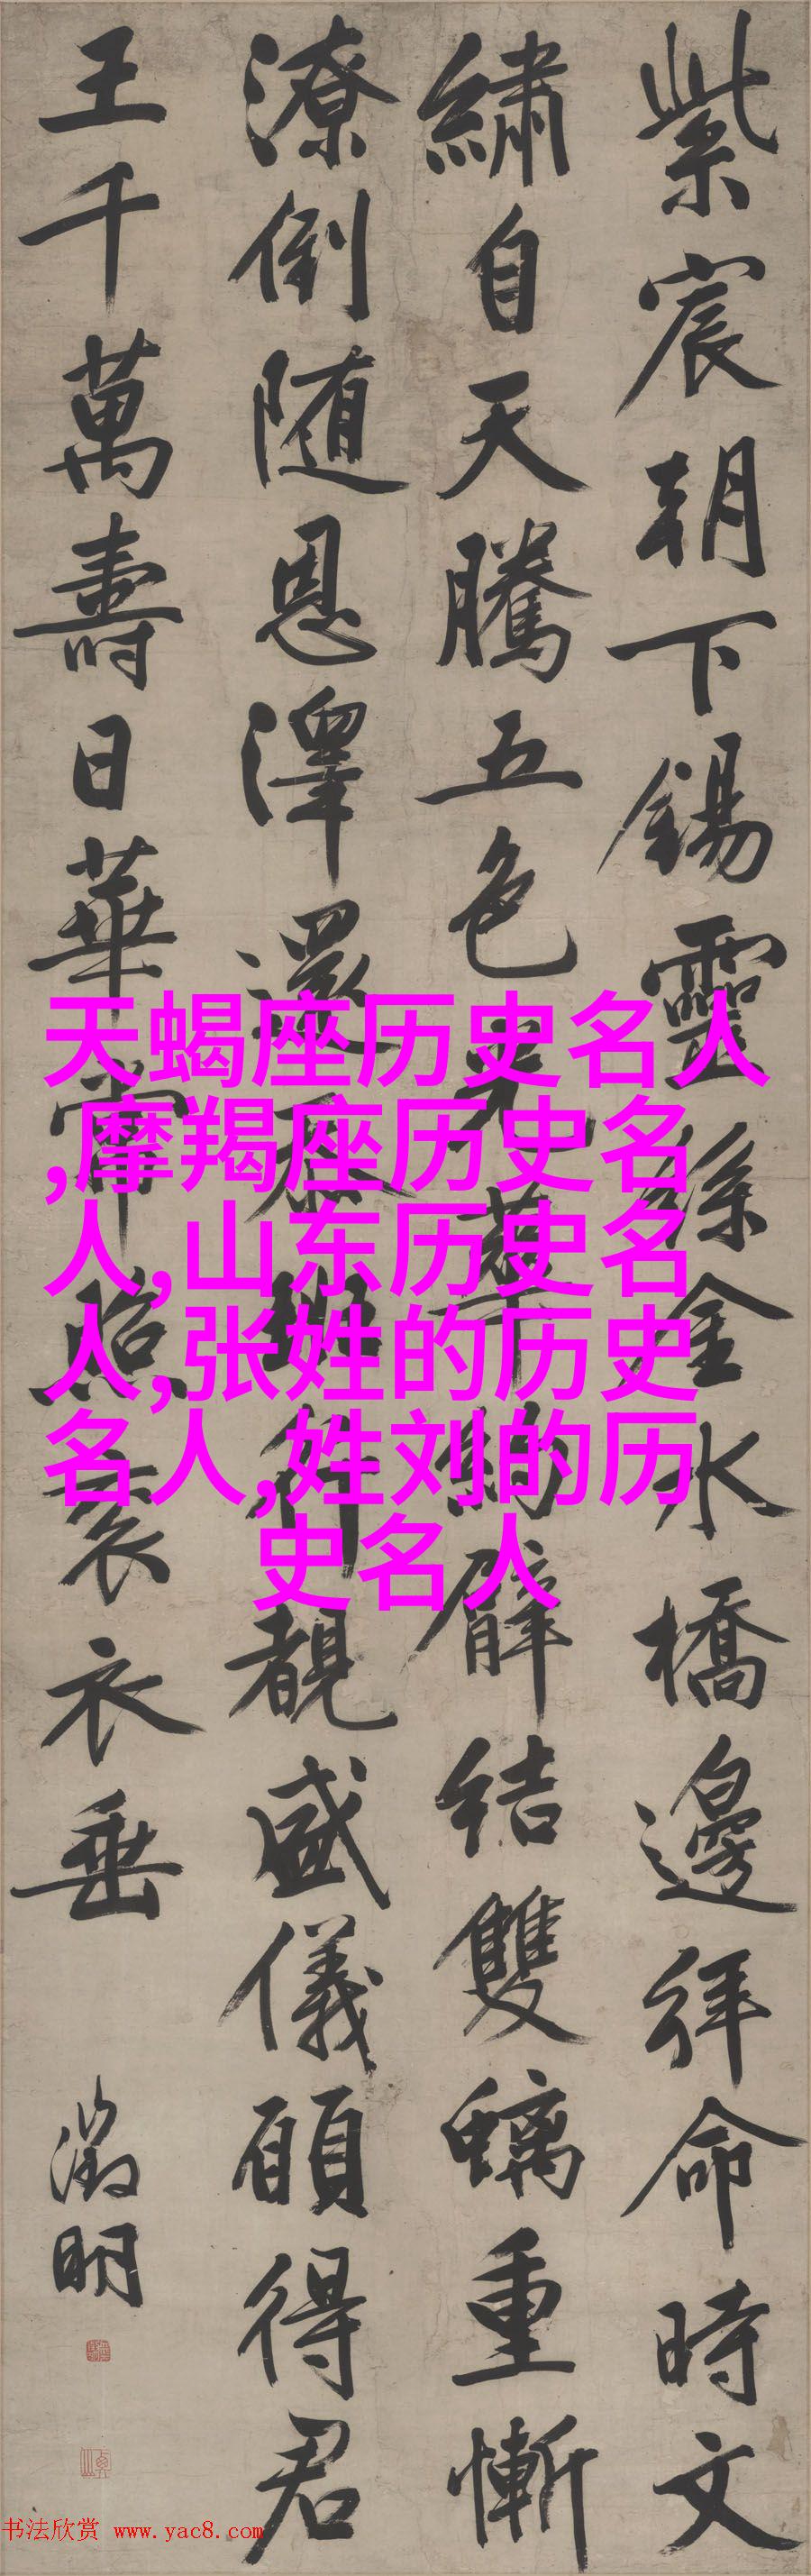 紫宸朝下錫靈絲金水橋邊拜命時文
繡自天騰五色綵帶約臂結雙螭重慚
潦倒隨恩澤還忝班行覩盛儀願得君
王千萬壽日華常照袞衣垂
徵明
天蝎座历史名人
,摩羯座历史名
人,山东历史名
人,张姓的历史
名人,姓刘的历
史名人
书法欣赏 www.yac8.com